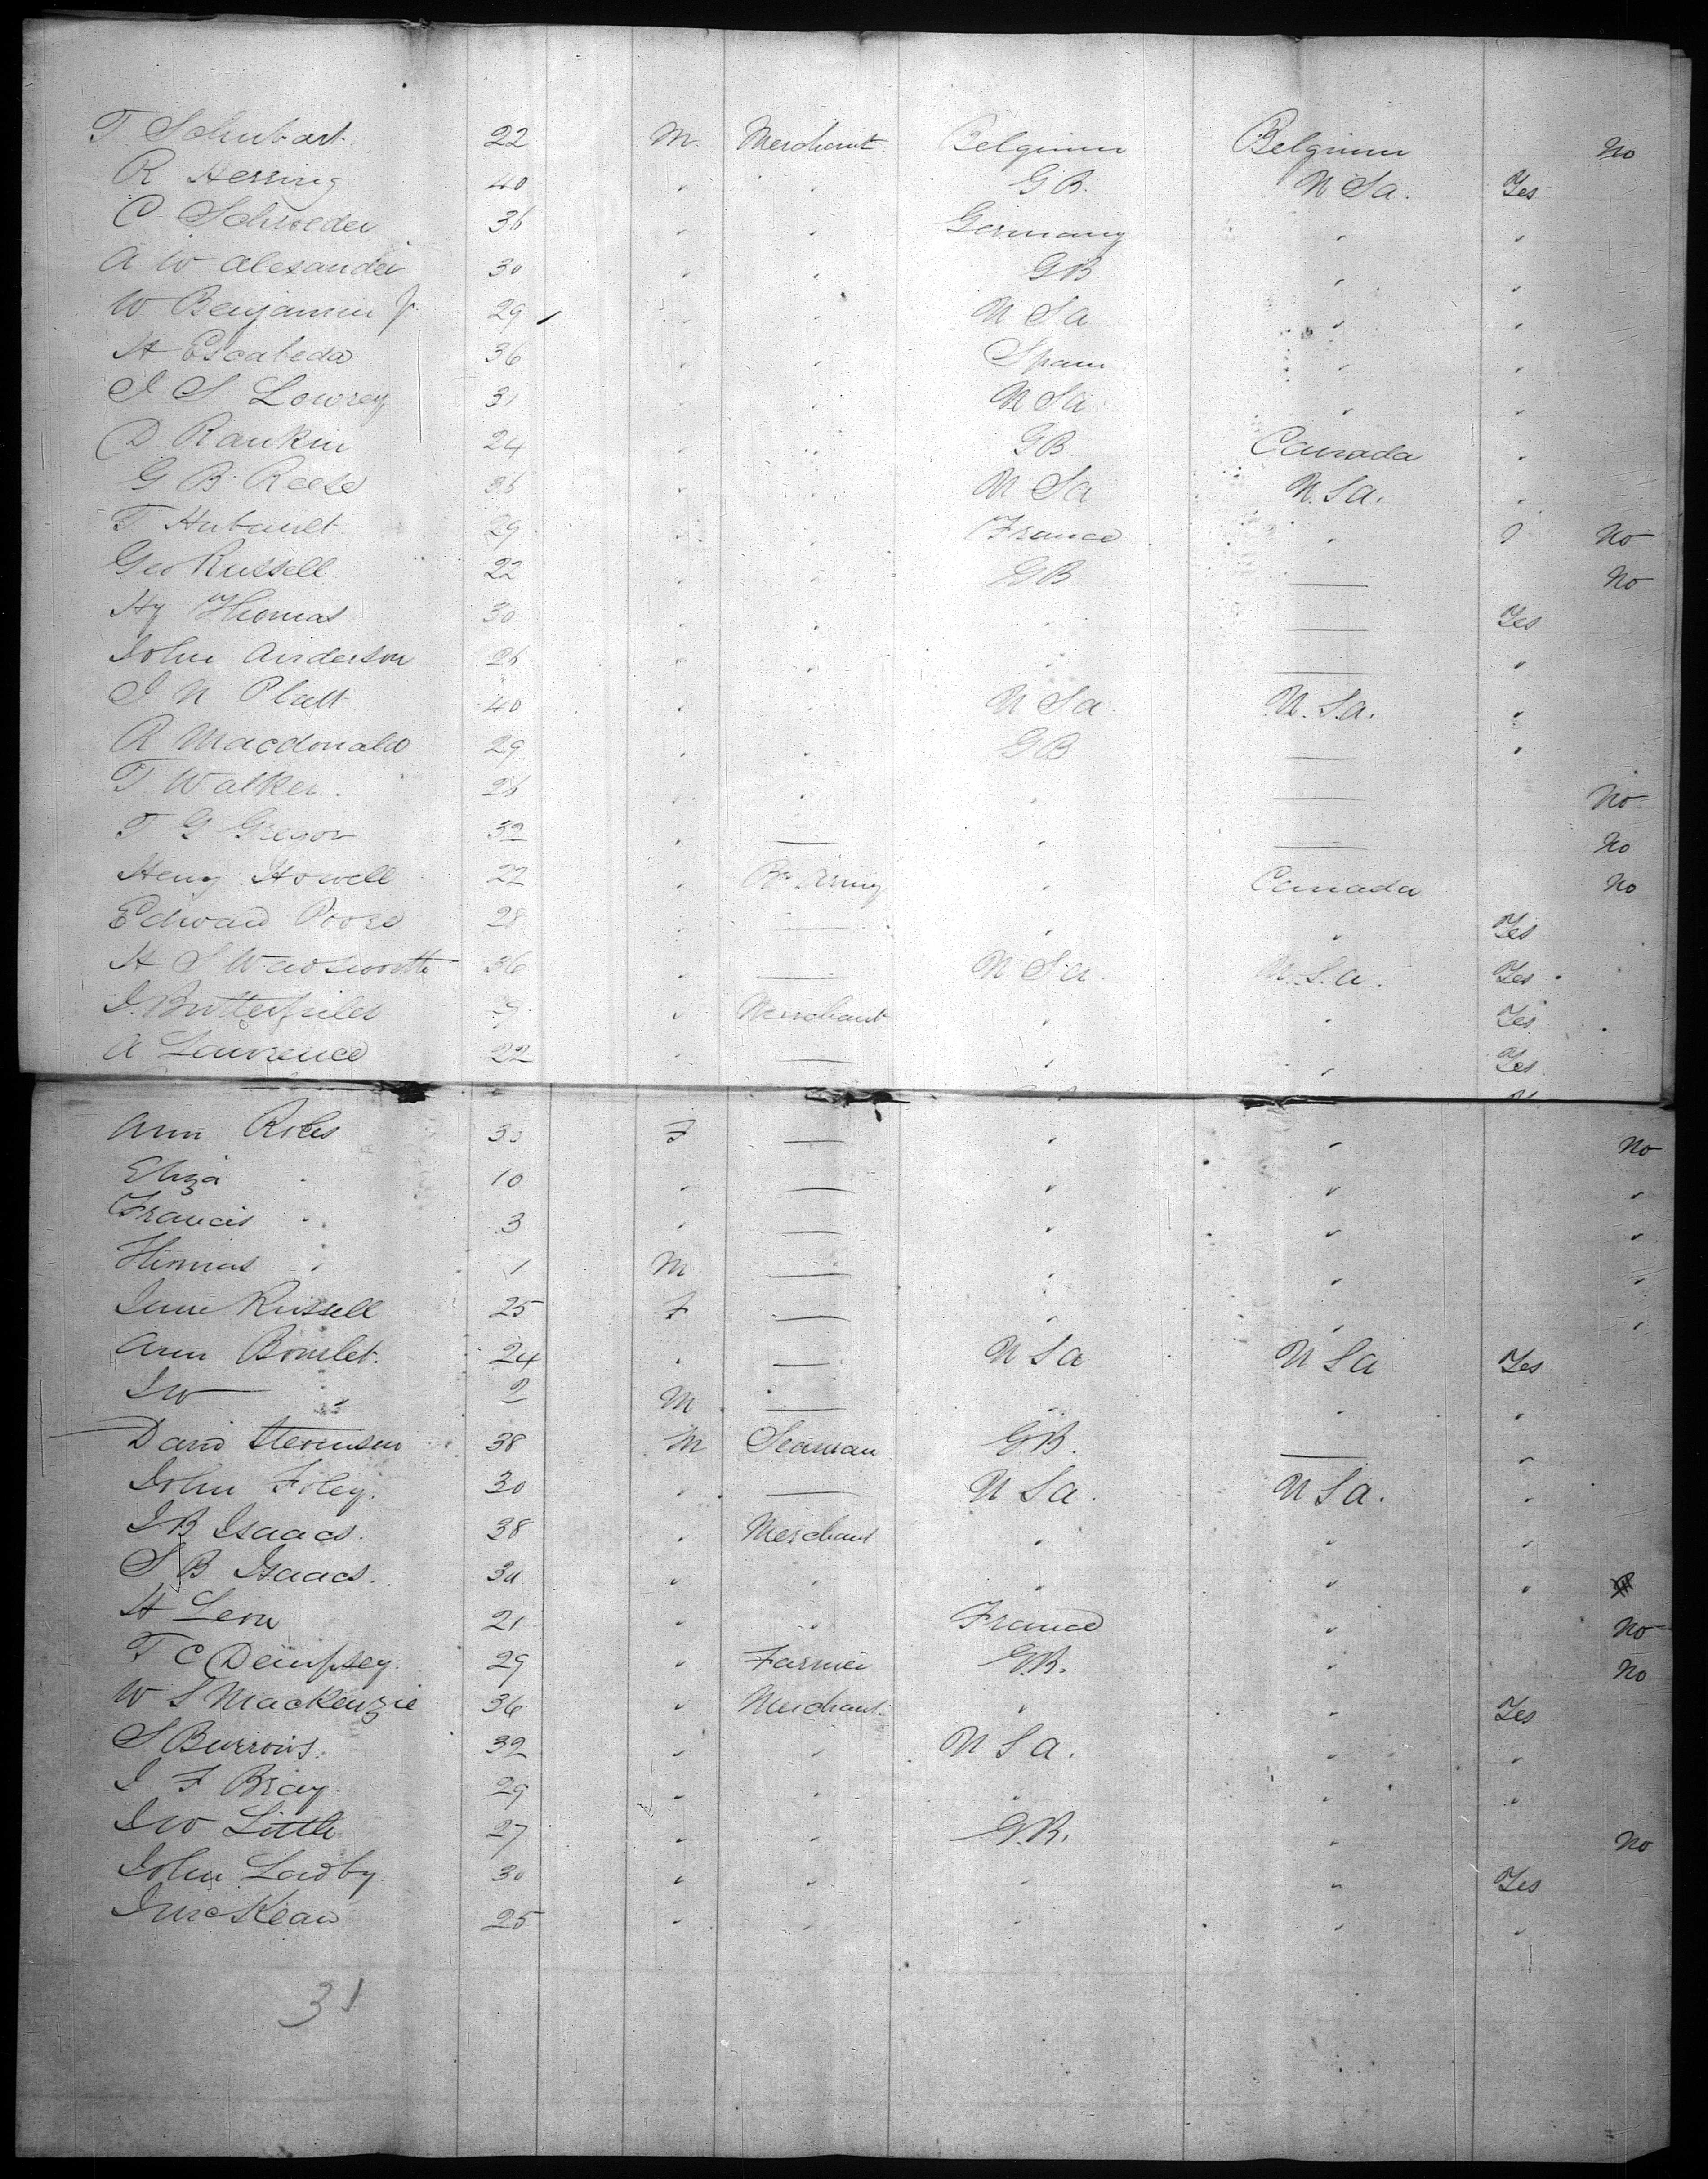 T. Schubart. 22 M. Merchant. Belgium Belgium No
R Herring 40 " " G B. U Sa. Yes
C Schroeder 36 " " Germany " "
A W Alexander 30 " " G B " "
W Benjamin Jr 29 " " U Sa " "
H Escabeda 36 " " Spain " "
J S Lowrey 31 " " U Sa " "
D Rankin 24 " " G B. Canada "
G B. Reese 36 " " U Sa U. S a. "
T Hubault. 29 " " France " No
Geo Russell 22 " " G B — No
Hy Thomas 30 " " " — Yes
John Anderson 26 " " " — "
J N Platt 40 " " U Sa. U. S. a. "
R Macdonald 29 " " G B — "
T. Walker. 26 " " " — No
T G Gregor 32 " — " — No
Heny Howell 22 " Br Army " Canada No
Edward Poore 28 " — " " Yes
H S Wadsworth 36 " — U S a. U. S. a. Yes
J. Butterfield " Merchant " " Yes
A Lawrence 22 " — " " Yes
Ann Roles F — " " No
Eliza " 10 " — " " "
Francis " 3 " — " " "
Thomas " 1 M — " " "
Jane Russell 25 F — " " "
Ann Bomlet. 24 " — U S a U S a Yes
J W " 2 M — " " "
David Stevenson 38 M Seaman G B. — "
John Foley. 30 " — U S a. U S a. "
J B Isaacs. 38 " Merchant " " "
S B Isaacs. 30 " " " " "
H Leon 21 " " France " No
T C Dempsey. 29 " Farmer G. B. " No
W S MacKenzie 36 " Merchant. " " Yes
S Burrows. 32 " " U S a. " "
J F Bray. 29 " " " " "
J W Little 27 " " G. B. " No
John Ladby. 30 " " " " Yes
J McKean 25 " " " " "
31